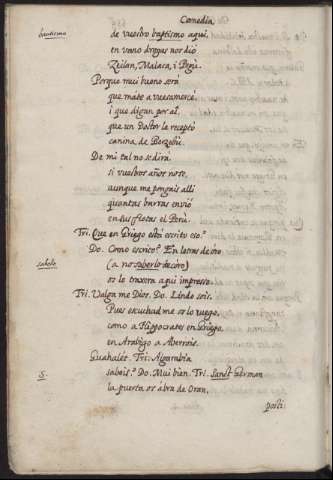 Comedia
bautismo
de vuestro baptismo aqui,
en vano drogas nos dio
Zeilan, Malaca, i Pegu.
Porque mui bueno será
que máte a vuesamerced
i que digan por al,
que un Doctor le receptó
canina, de
De mi tal no se dira
si vuestros años no se,
aunque me pongais alli
quantas barras envió
en sus flotas el Perú.
Tri. Que en Griego está escrito eso?
Do. Como escrito? En letras de óro
sabelo
(a no saberlo de coro)
os lo traxera aqui impresso.
Tri. Valga me Dios. Do. Lindo sois.
Pues escuchad me os lo ruego,
como a Hippocrates en Griego,
en Arabigo a Averrois.
Guahalá. Tri. Algarabia
S.
sabeis? Do. Mui bien. Tri. Sanct German
la puerta os ábra de Oran,
posti